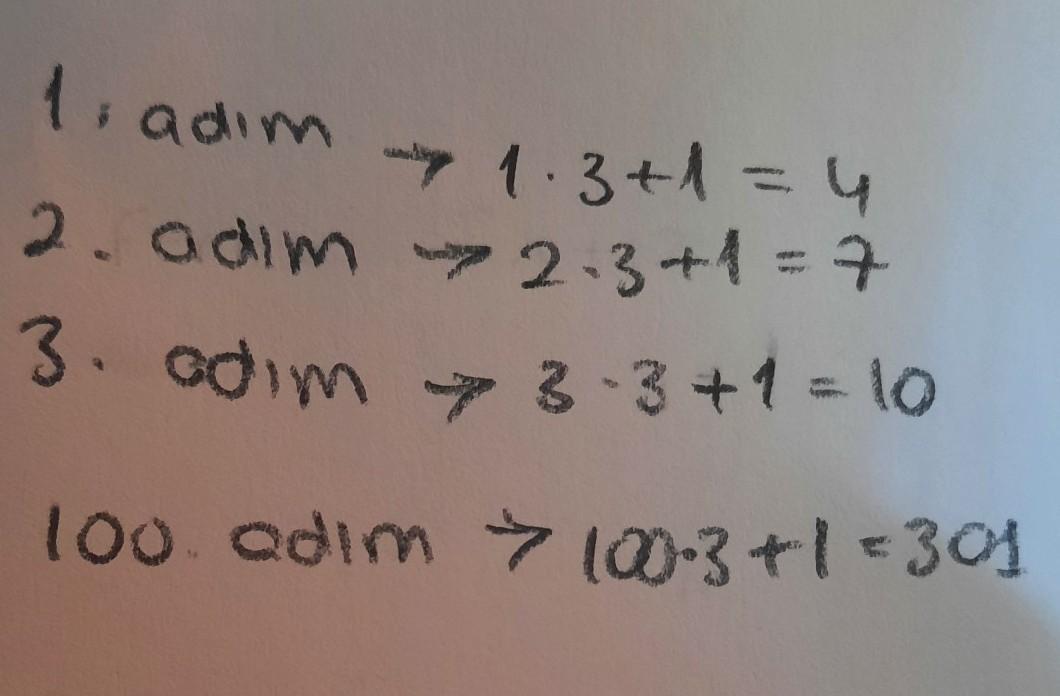 1. adım → 1.3+1 = 4
2. adım → 2.3+1 = 7
3. adım → 3.3+1 = 10
100. adım → 100.3+1=301